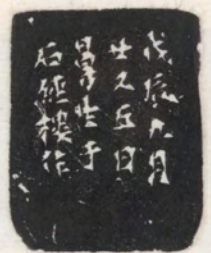 戊辰九月
廿又五日
昌生于
石經樓作